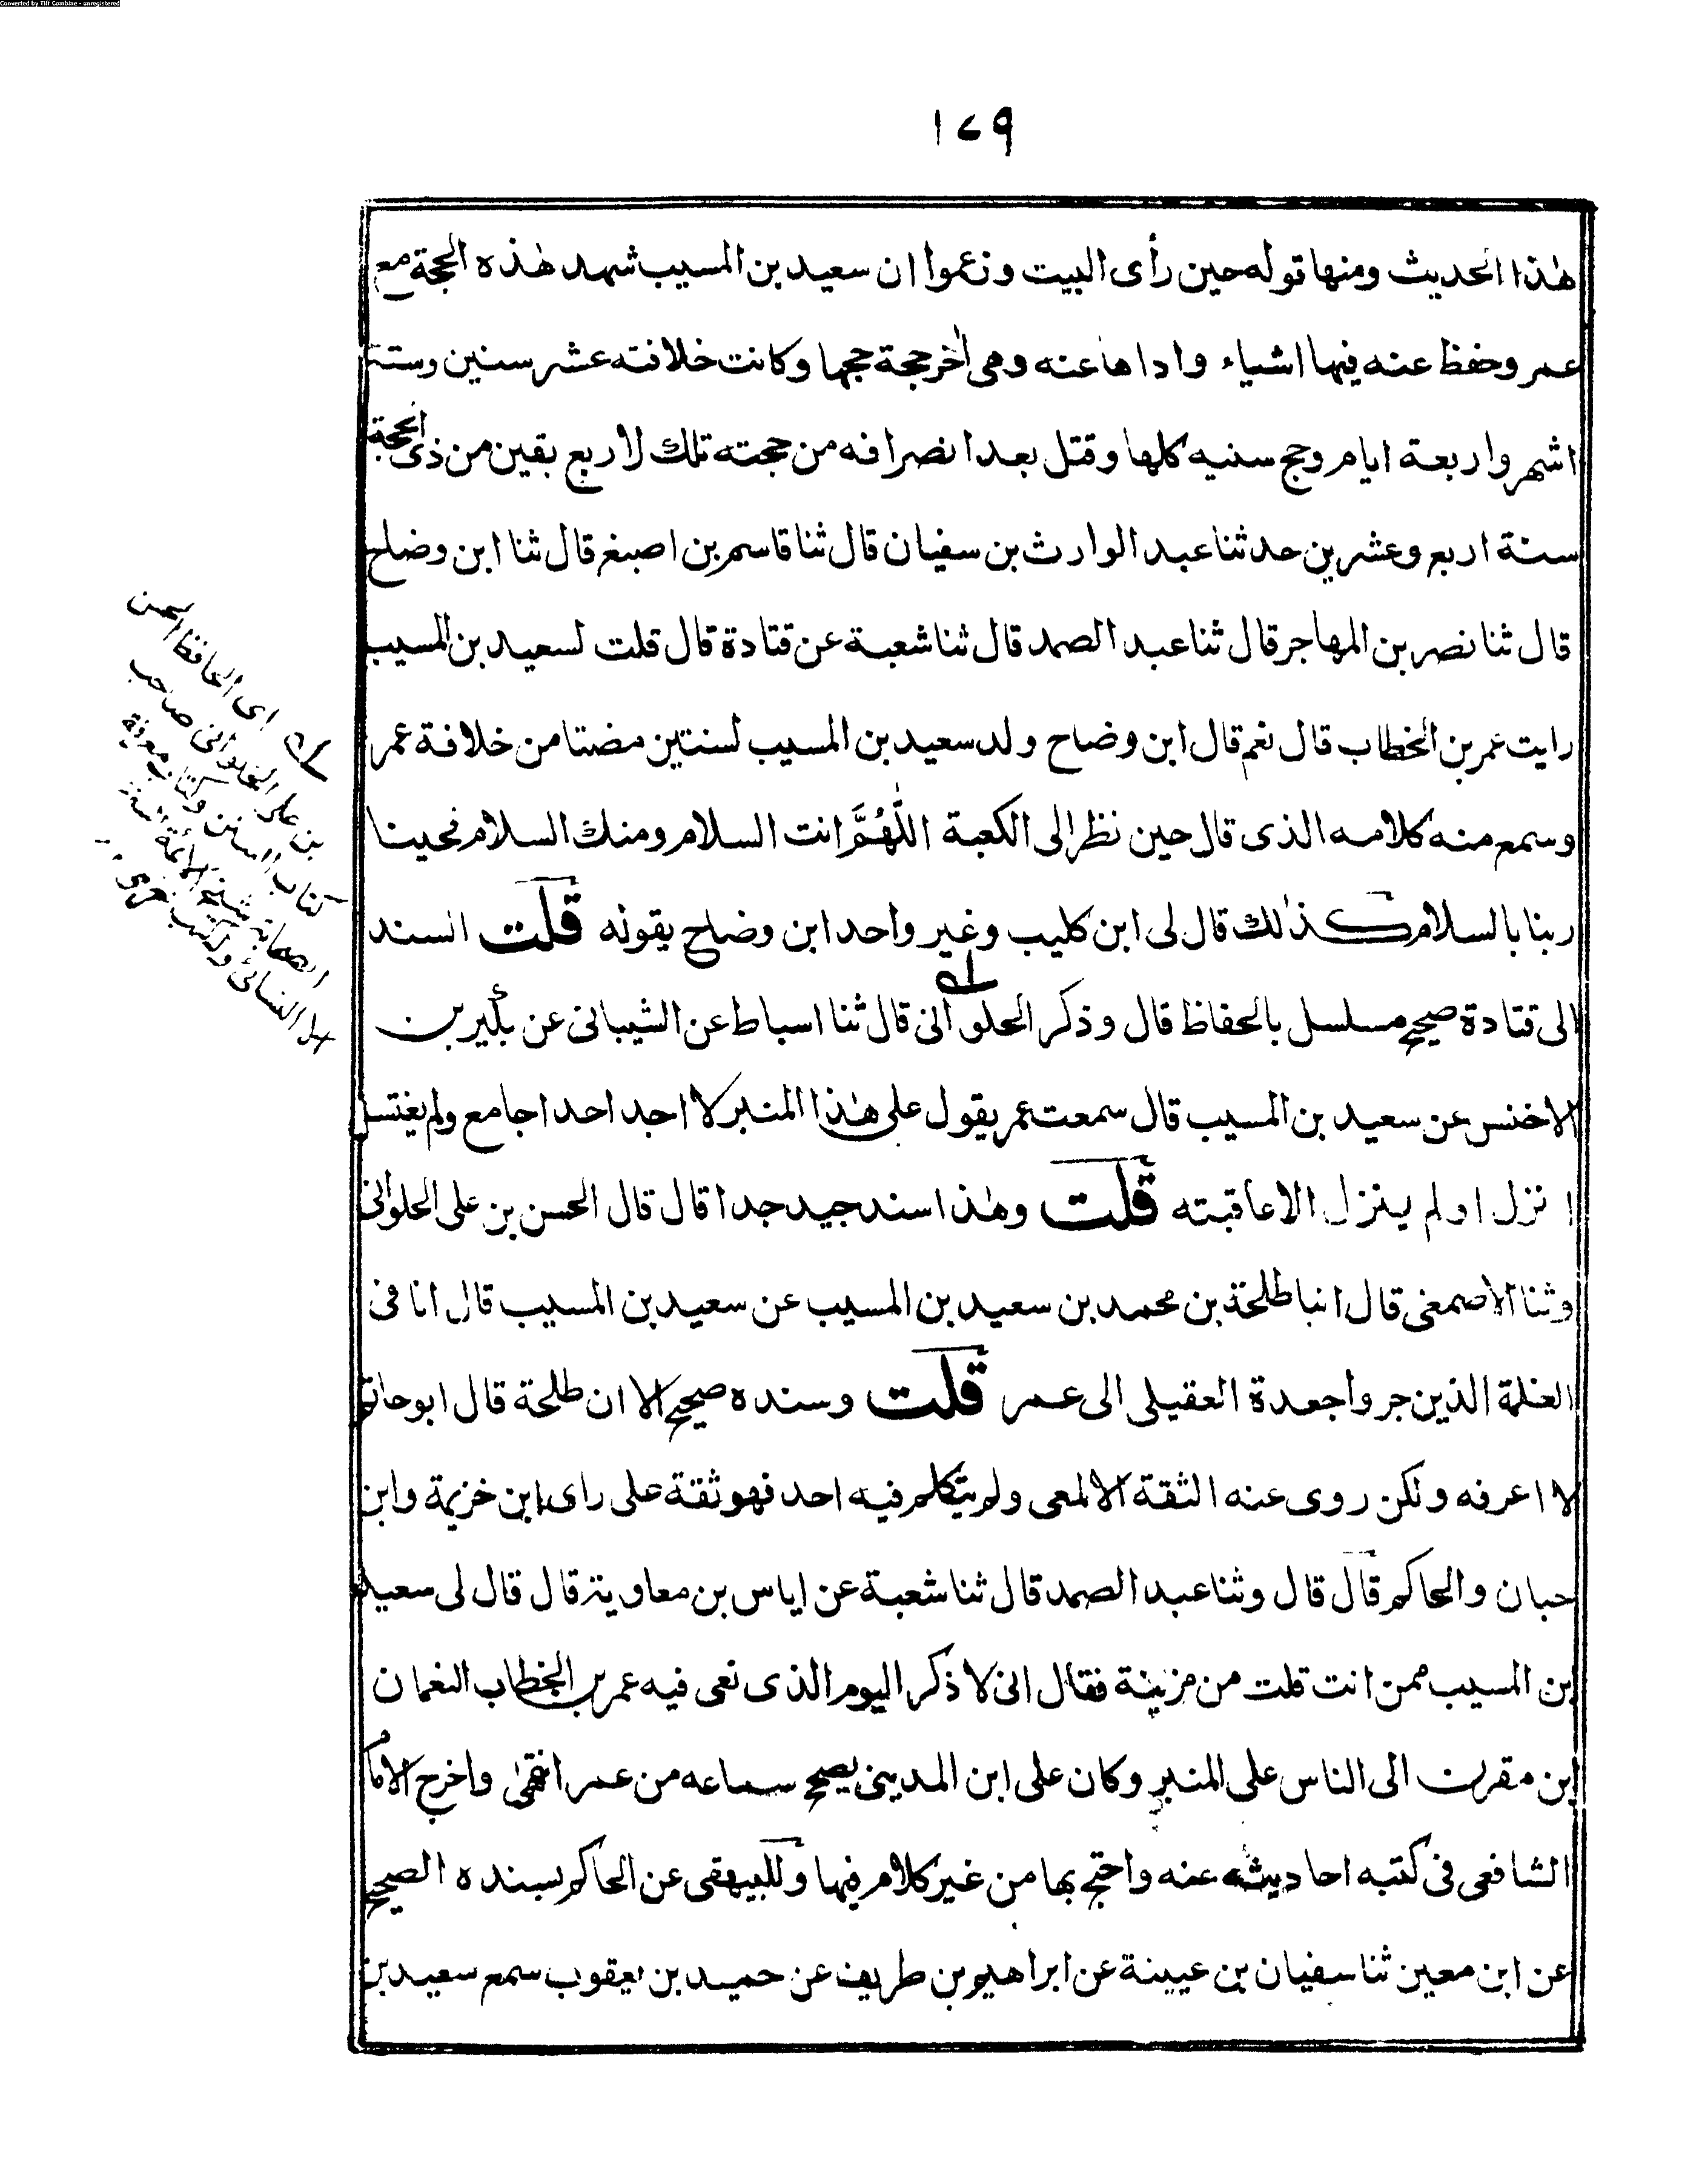 Converted by Tiff Combine - unregistered
١٧٩
هٰذا الحديث ومنها قوله حين رأى البيت وزعموا ان سعيد بن المسيب شهد هٰذه الحجة مع
عمر وحفظ عنه فيها اشياء واداها عنه وهى اٰخر حجة حجها وكانت خلافته عشر سنين وستة
اشهر واربعة ايام وحج سنيه كلها وقتل بعد انصرافه من حجته تلك لاربع بقين من ذى الحجة
سنة اربع وعشرين حدثنا عبد الوارث بن سفيان قال ثنا قاسم بن اصبغ قال ثنا ابن وضاح
قال ثنا نصر بن المهاجر قال ثنا عبد الصمد قال ثنا شعبة عن قتادة قال قلت لسعيد بن المسيب
رايت عمر بن الخطاب قال نعم قال ابن وضاح ولد سعيد بن المسيب لسنتين مضتا من خلافة عمر
وسمع منه كلامه الذى قال حين نظر الى الكعبة اللّٰهُمَّ انت السلام ومنك السلام فحينا
ربنا بالسلام كذٰلك قال لى ابن كليب وغير واحد ابن وضاح يقوله قلت السند
الى قتادة صحيح مسلسل بالحفاظ قال وذكر الحلوانى قال ثنا اسباط عن الشيبانى عن بكير بن
الاخنس عن سعيد بن المسيب قال سمعت عمر يقول على هٰذا المنبر لا اجد احدا جامع ولم يغتسل
انزل او لم ينزل الا عاقبته قلت وهٰذا سند جيد جدا قال قال الحسن بن على الحلوانى
وثنا الاصمعى قال انبا طلحة بن محمد بن سعيد بن المسيب عن سعيد بن المسيب قال انا فى
الغلمة الذين جروا جعدة العقيلى الى عمر قلت وسنده صحيح الا ان طلحة قال ابو حاتم
لا اعرفه ولكن روى عنه الثقة الالمعى ولم يتكلم فيه احد فهو ثقة على راى ابن خزيمة وابن
حبان والحاكم قال قال وثنا عبد الصمد قال ثنا شعبة عن اياس بن معاوية قال قال لى سعيد
ابن المسيب ممن انت قلت من مزينة فقال انى لاذكر اليوم الذى نعى فيه عمر بن الخطاب النعمان
ابن مقرن الى الناس على المنبر وكان على ابن المدينى يصحح سماعه من عمر انتهىٰ واخرج الامام
الشافعى فى كتبه احاديثه عنه واحتج بها من غير كلام فيها وللبيهقى عن الحاكم بسنده الصحيح
عن ابن معين ثنا سفيان بن عيينة عن ابراهيم بن طريف عن حميد بن يعقوب سمع سعيد بن
له اى الحافظ الحسن
بن على الحلوانى صاحب
كتاب السنن وكتاب معرفة
الصحابة شيخ الائمة الستة